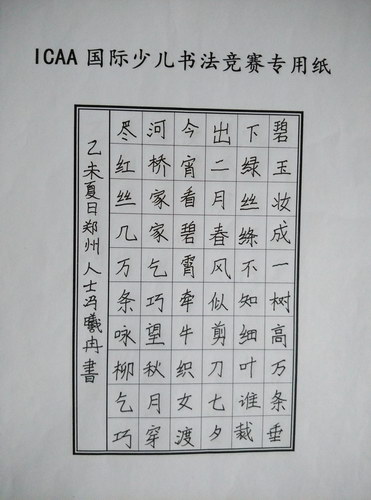 ICAA 国际少儿书法竞赛专用纸
碧玉妆成一树高万条垂
下绿丝绦不知细叶谁裁
出二月春风似剪刀七夕
今宵看碧霄牵牛织女渡
河桥家家乞巧望秋月穿
尽红丝几万条咏柳乞巧
乙未夏日郑州人士冯曦冉書